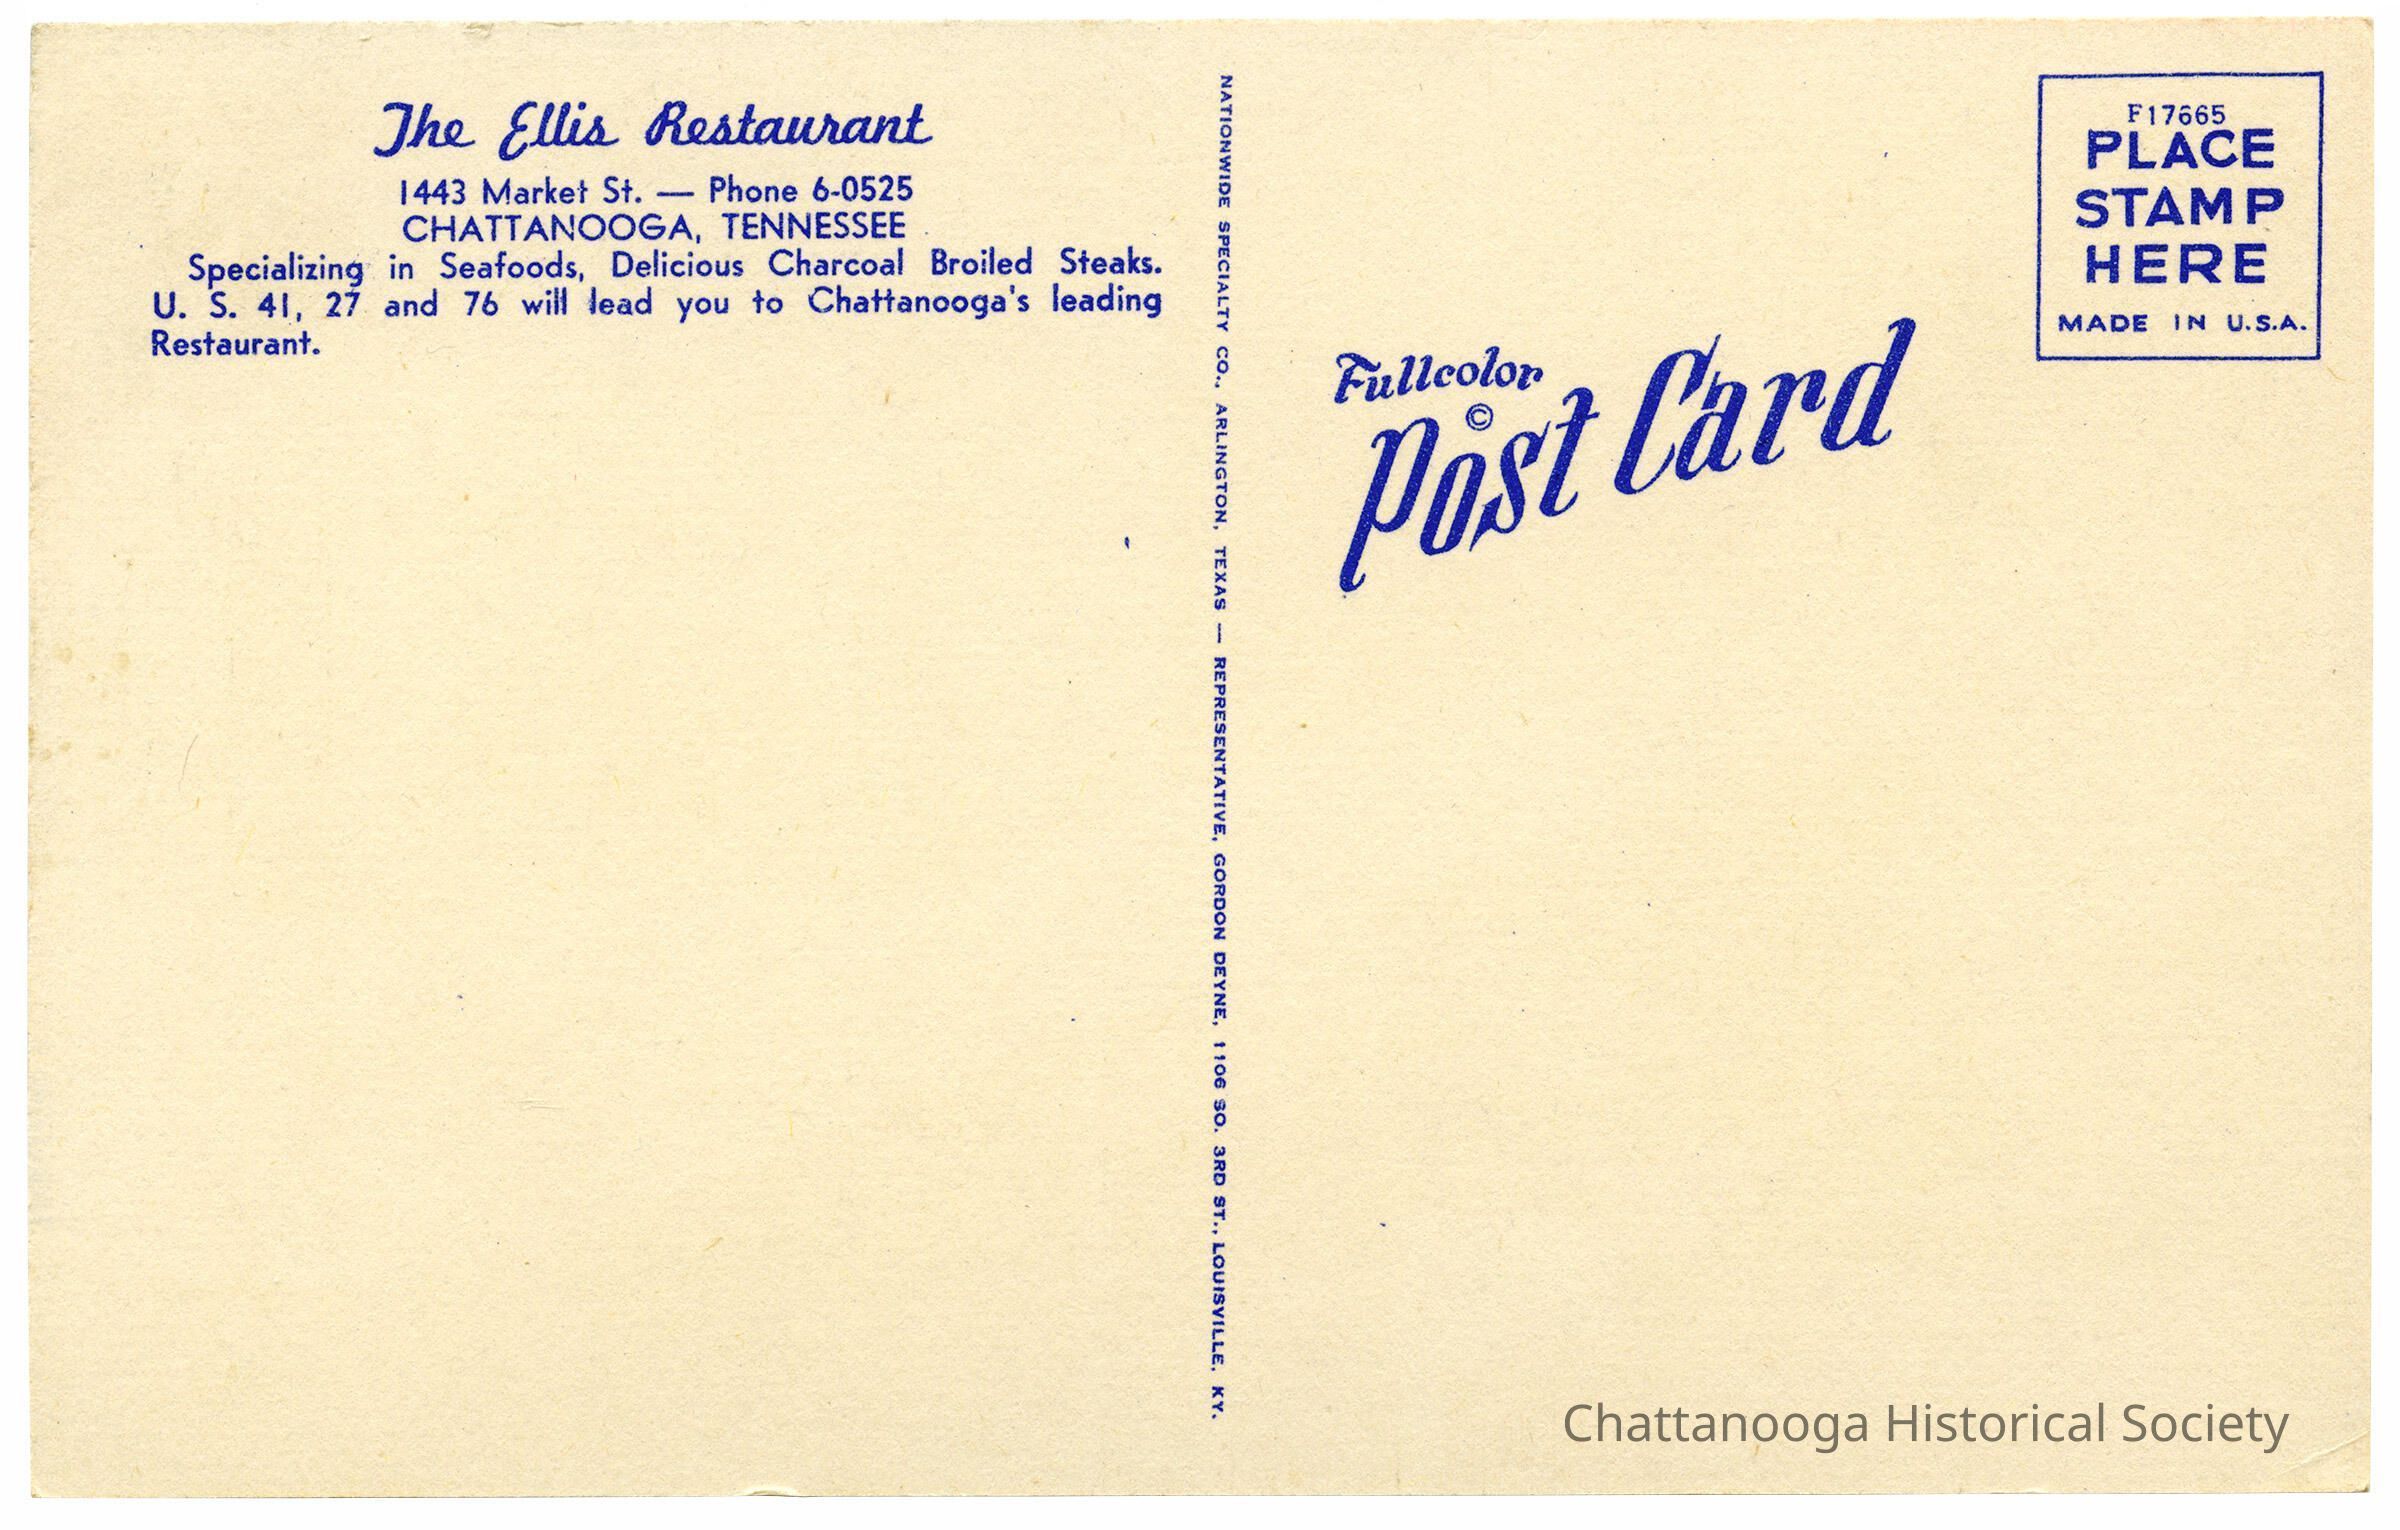 The Ellis Restaurant
1443 Market St. — Phone 6-0525
CHATTANOOGA, TENNESSEE
Specializing in Seafoods, Delicious Charcoal Broiled Steaks.
U. S. 41, 27 and 76 will lead you to Chattanooga's leading
Restaurant.
NATIONWIDE SPECIALTY CO., ARLINGTON, TEXAS — REPRESENTATIVE, GORDON DEYNE, 1106 SO. 3RD ST., LOUISVILLE, KY.
F17665
PLACE
STAMP
HERE
MADE IN U.S.A.
Fullcolor
©
Post Card
Chattanooga Historical Society